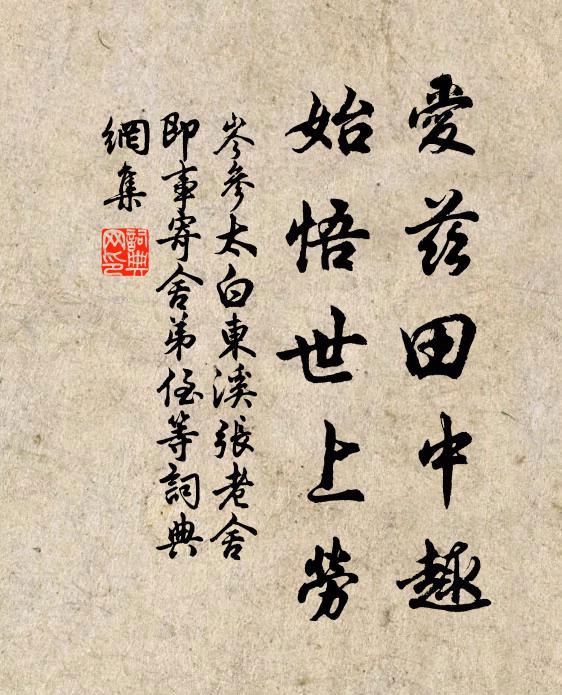 愛茲田中趣
始悟世上勞
岑參太白東溪張老舍
即事寄舍弟侄等詞典
網集
詞典
网印